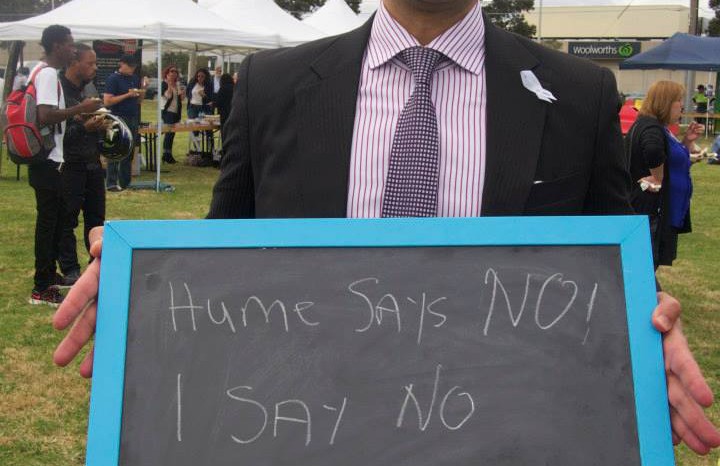 woolworths
Hume Says NO!
I SAY NO